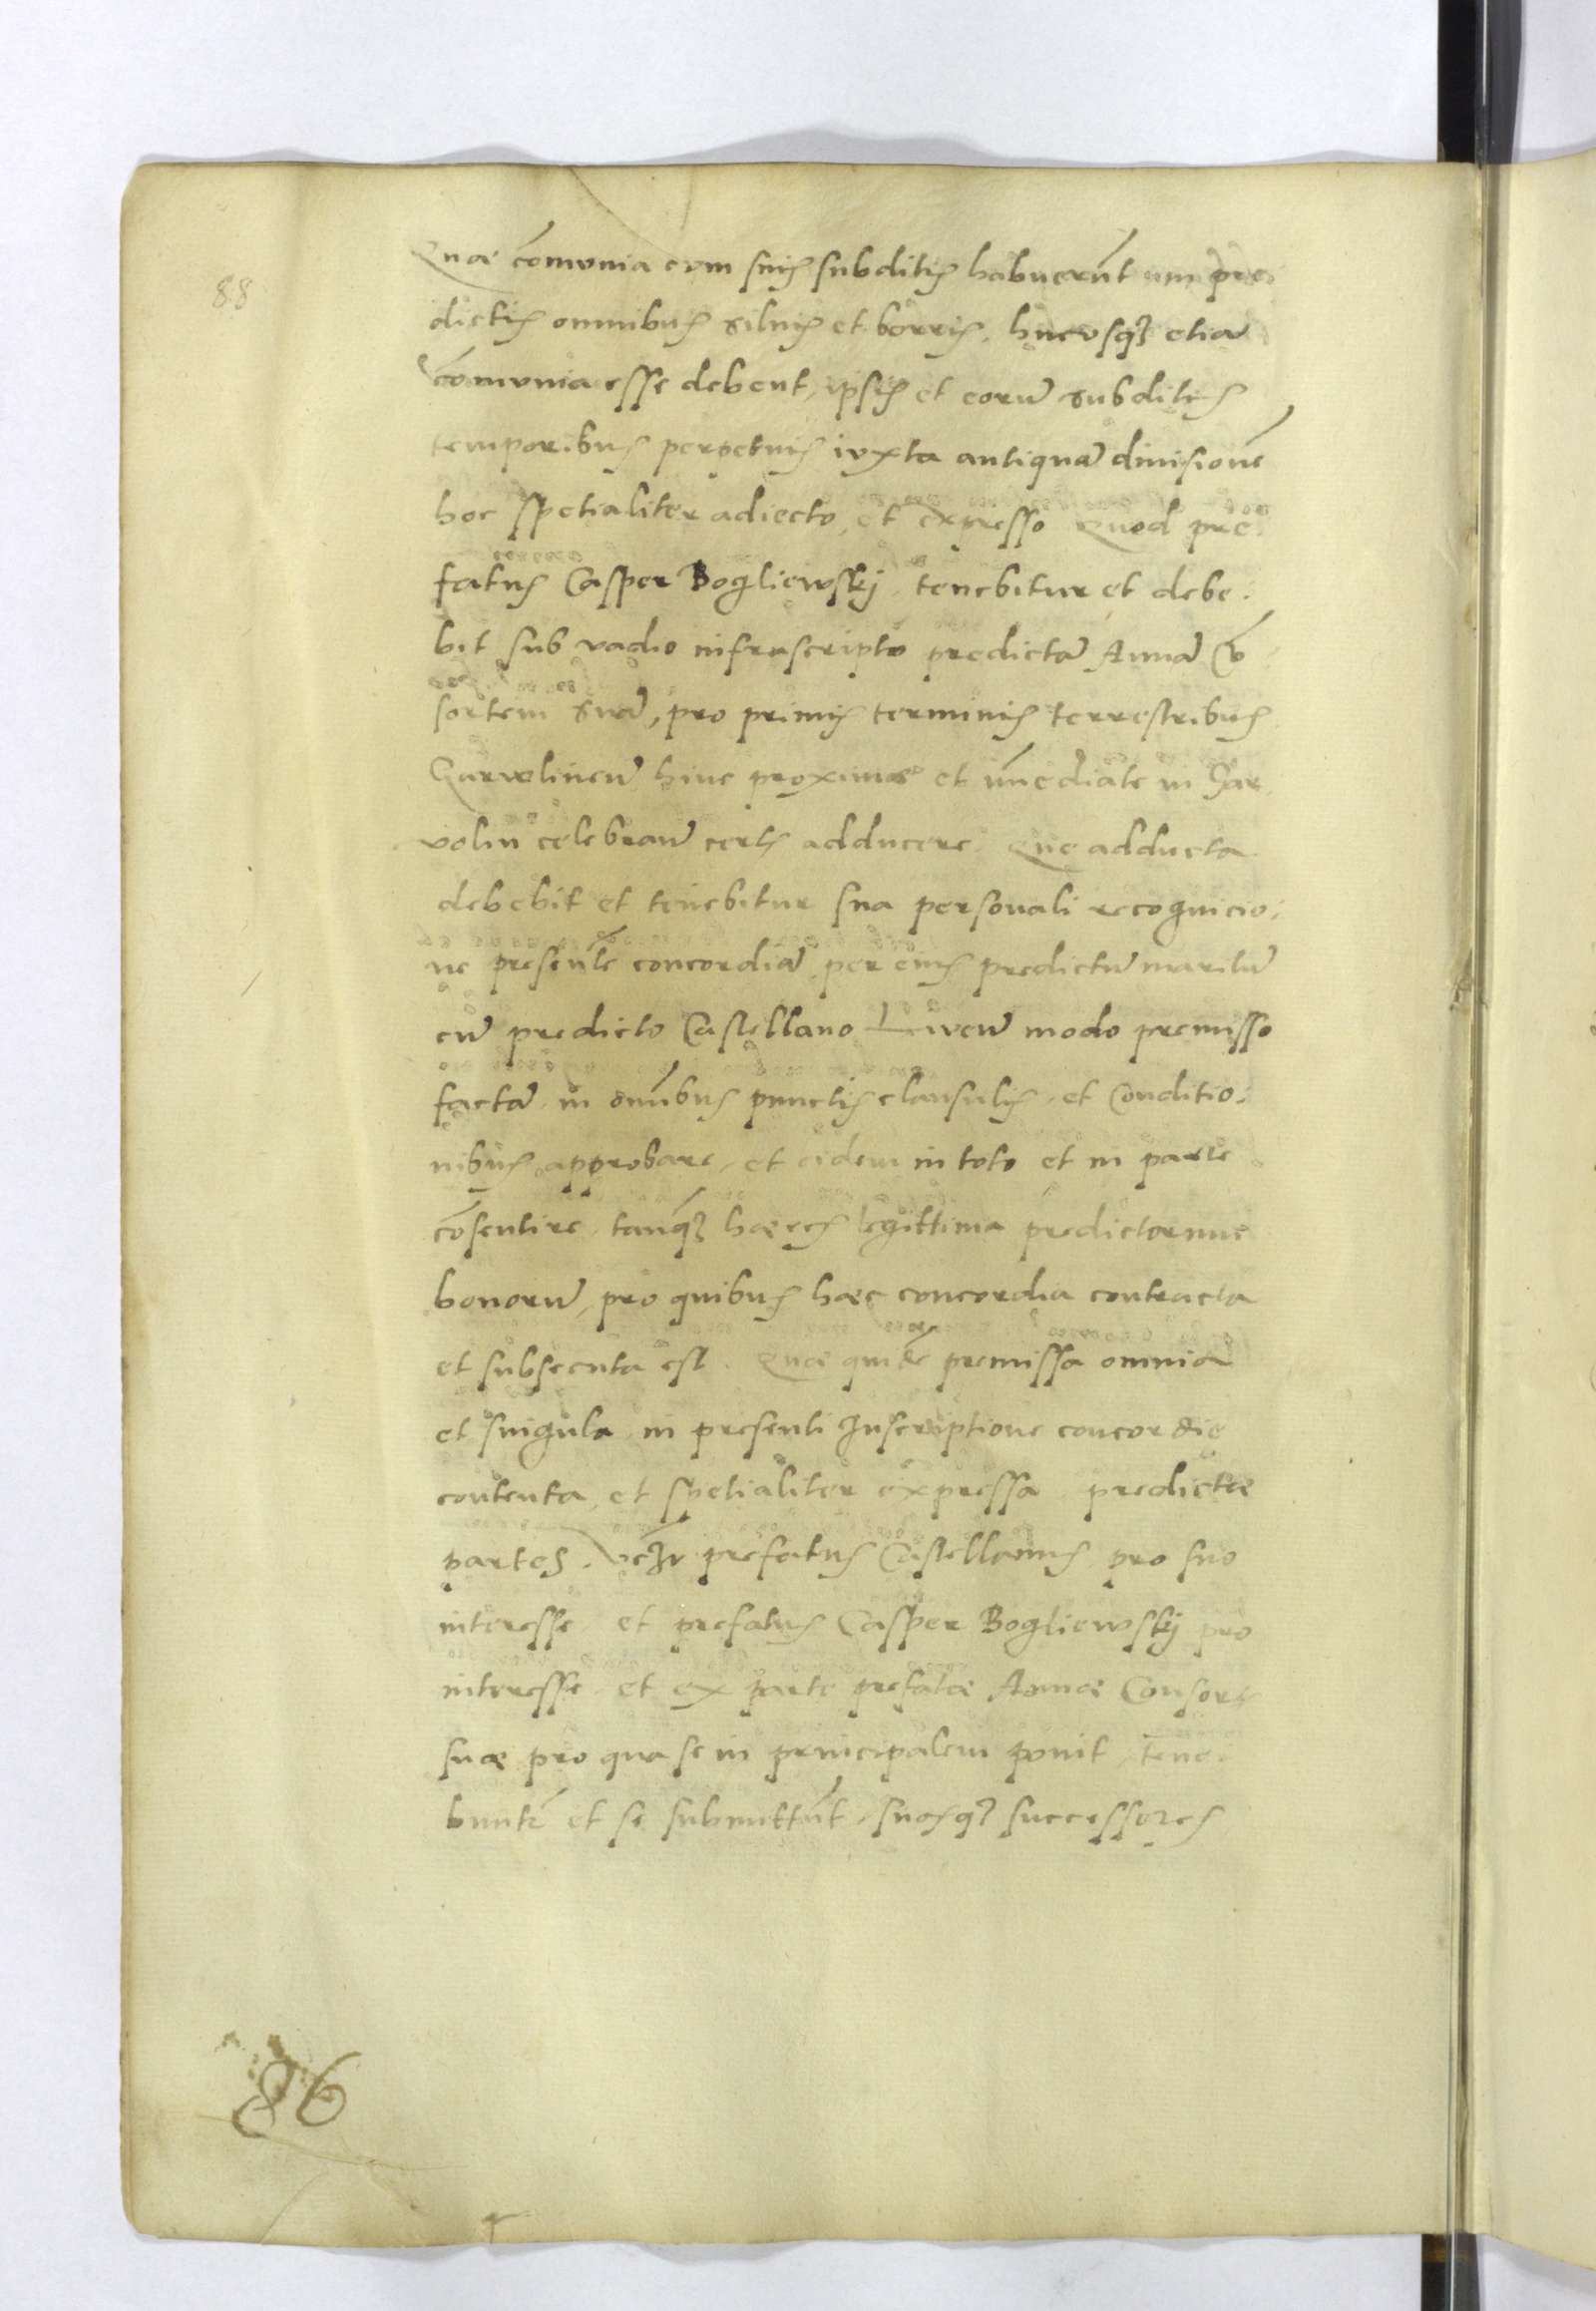 88
Quæ com̄unia cum suis subditis habuerūt in pre
dictis omnibus siluis et borris, hucusq3 etiā
com̄unia esse debent, ipsis et eorū subditis
temporibus perpetuis iuxta antiquā diuisionē
hoc spetialiter adiecto, et expresso Quod pre:
fatus Casper Bogliewskij tenebitur et debe:
bit sub vadio infrascripto predictā Annā Cō
sortem suā, pro primis terminis terrestribus
hinc proximæ et im̄ediate in Gar
volin celebran̄ adducere. Quę adducta
debebit et tenebitur sua personali recognicio:
ne presentē concordiā per eius predictū maritū
cū predicto Castellano modo premisso
factā in om̄ibus punctis clausulis, et Conditio:
nibus approbare, et eidem in toto et in parte
cōsentire, tanq̄3 hæres legittima predictorum
bonorū, pro quibus hæc concordia contracta
et subsecuta est. Quæ quidē premissa omnia
et singula in presenti Inscriptione concordię
contenta, et spetialiter expressa predictæ
partes. prefatus Castellanus pro suo
interesse, et prefatus Casper Bogliewskij pro
interesse et ex parte prefatæ Annæ Consort
suæ pro qua se in principalem ponit, tene:
buntr̄ et se submittūt, suosq3 successores
86